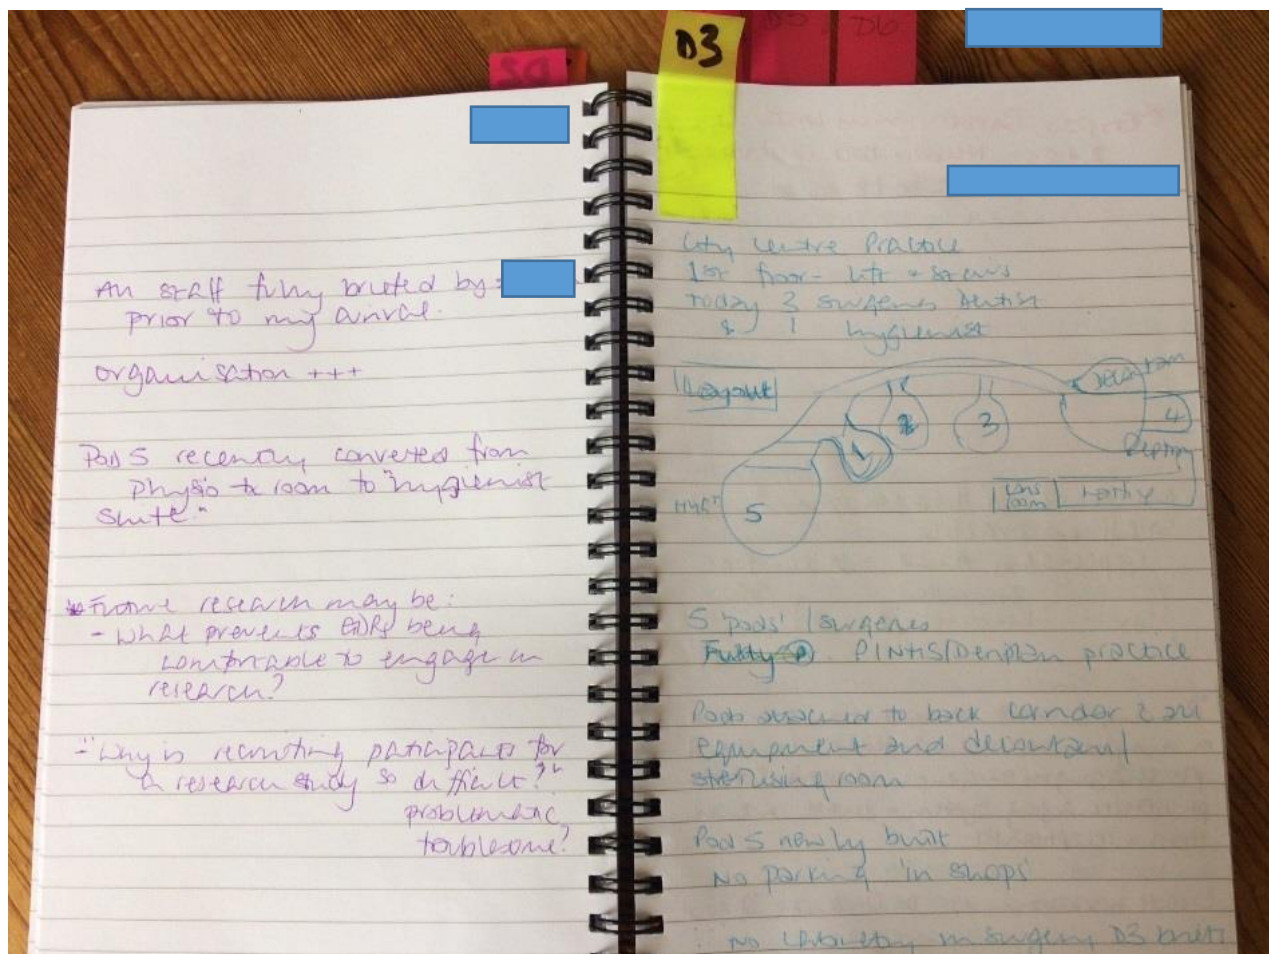 D3
D6
All staff fully briefed by
prior to my arrival.
organisation +++
Pod 5 recently converted from
physio tx room to "hygienist
suite."
Future research may be:
- What prevents GDPs being
comfortable to engage in
research?
- "Why is recruiting participants for
a research study so difficult?"
problematic
troublesome?
City Centre Practice
1st floor - lift + stairs
today 3 surgeries dentist
& 1 hygienist
Layout
1
2
3
4
5
Decontam
Hyg
Cons
room
5 'pods' / surgeries
Fully P. P/NHS/Denplan practice
Pods attached to back corridor & all
equipment and decontam/
sterilising room
Pod 5 newly built
No parking 'in shops'
No in surgery D3